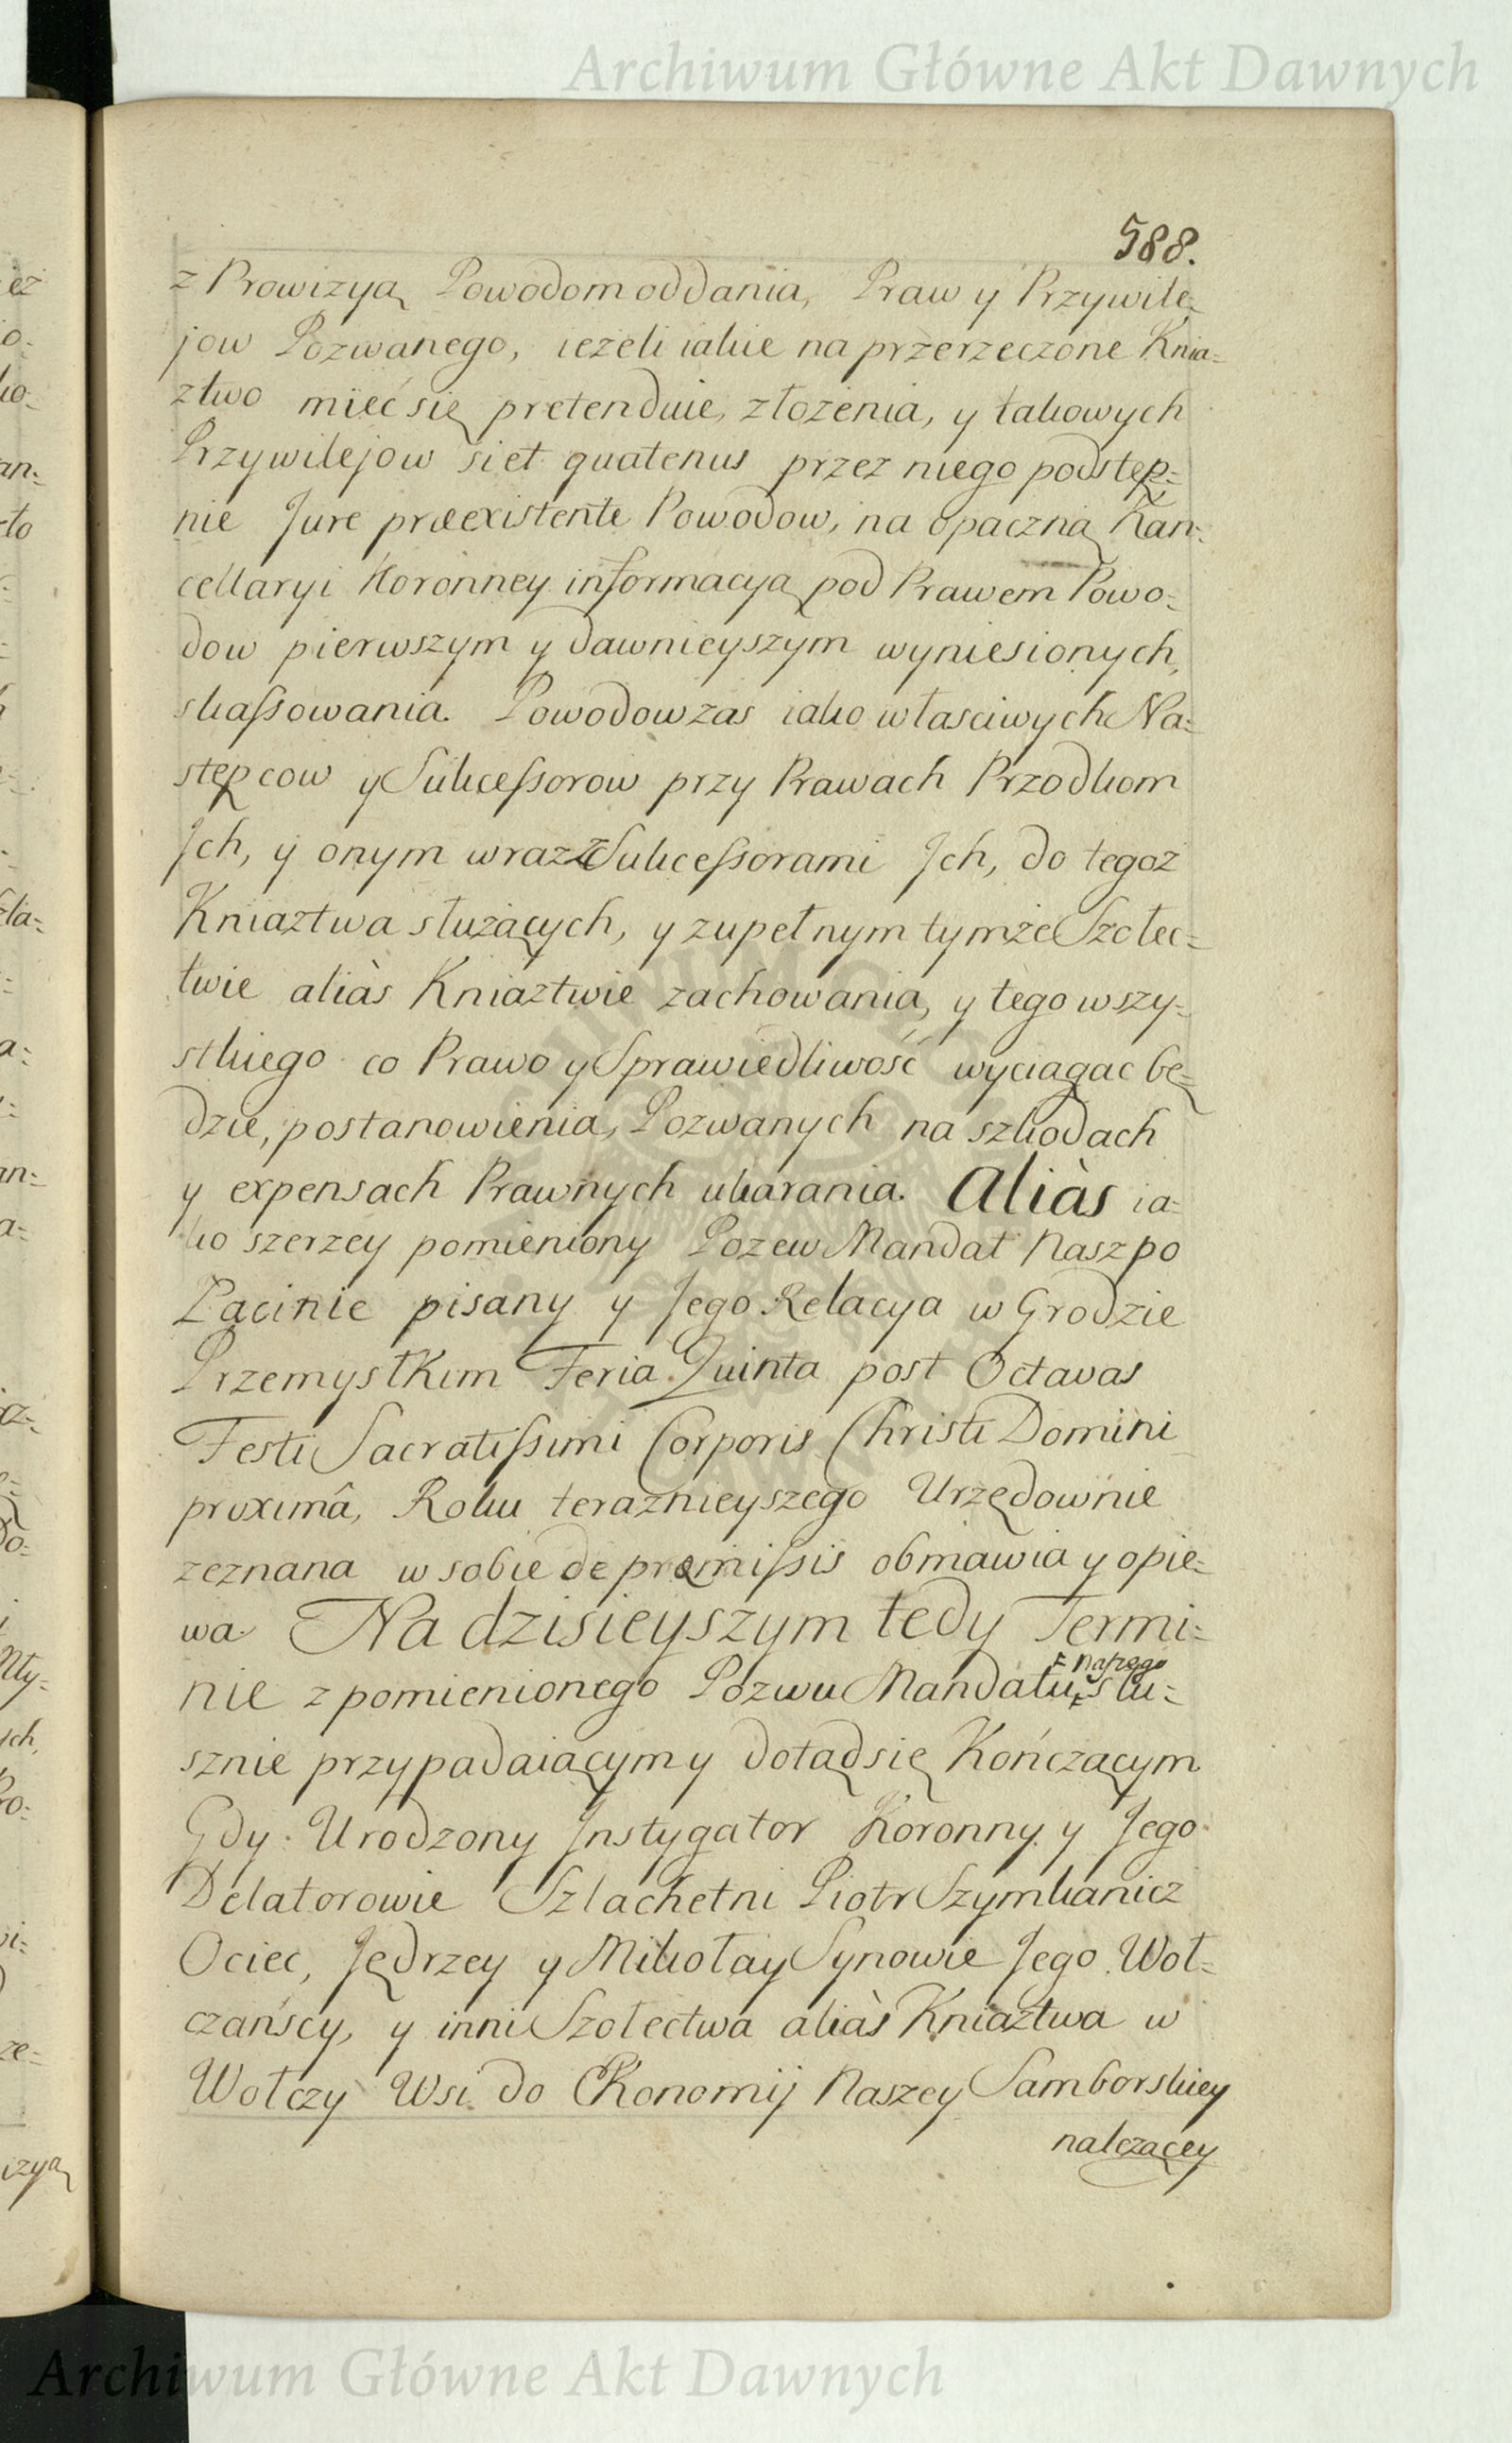 Archiwum Główne Akt Dawnych
588.
z Prowizyą Powodom oddania, Praw y Przywile=
jow Pozwanego, ieżeli iakie na przerzeczone Knia=
ztwo mieć się pretenduie, złożenia, y takowych
Przywilejow si et quatenus przez niego podstęp=
nie Jure præexistente Powodow, na opaczną Kan=
cellaryi Koronney informacyą pod Prawem Powo=
dow pierwszym y dawnieyszym wyniesionych,
skaſsowania. Powodow zas iako własciwych Na=
stępcow y Sukceſsorow przy Prawach Przodkom
Jch, y onym wraz z Sukceſsorami Jch, do tegoż
Kniaztwa służących, y zupełnym tymże Szołec=
twie aliàs Kniaztwie zachowania, y tego wszy=
stkiego co Prawo y Sprawiedliwość wyciągac bę=
dzie, postanowienia, Pozwanych na szkodach
y expensach Prawnych ukarania. Aliàs ia=
ko szerzey pomieniony Pozew Mandat Nasz po
Łacinie pisany y Jego Relacya w Grodzie
Przemysłkim Feria Quinta post Octavas
Festi Sacratiſsimi Corporis Christi Domini
proximâ, Roku teraznieyszego Urzędownie
zeznana w sobie de præmiſsis obmawia y opie=
wa. Na dzisieyszym tedy Termi=
F Naſzego
nie z pomienionego Pozwu Mandatu F słu=
sznie przypadaiącym y dotąd się Kończącym
Gdy Urodzony Jnstygator Koronny y Jego
Delatorowie Szlachetni Piotr Szymkanicz
Ociec, Jędrzey y Mikołay Synowie Jego Woł=
czańscy, y inni Szołectwa aliàs Kniaztwa w
Wołczy Wsi do Ekonomij Naszey Samborskiey
nalezącey
Archiwum Główne Akt Dawnych